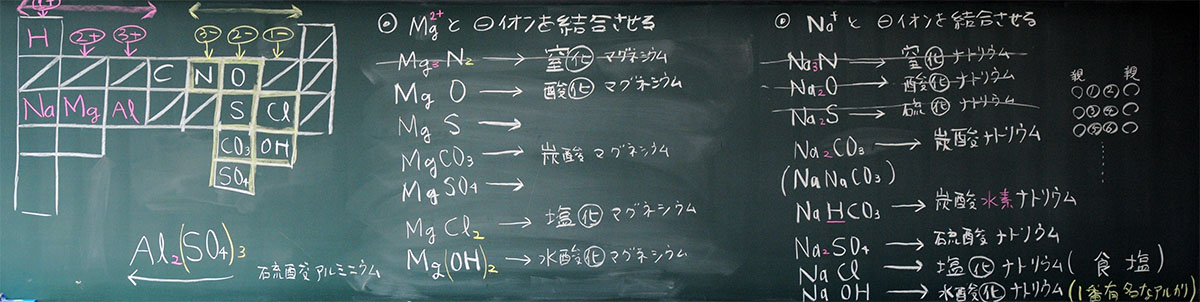 1+
H
2+ 3+ 3- 2- 1-
C N O
Na Mg Al S Cl
CO₃ OH
SO₄
Al₂(SO₄)₃
硫酸アルミニウム
◎ Mg²⁺ と ⊖イオンを結合させる
Mg₃N₂ → 窒化マグネシウム
MgO → 酸化マグネシウム
MgS →
MgCO₃ → 炭酸マグネシウム
MgSO₄ →
MgCl₂ → 塩化マグネシウム
Mg(OH)₂ → 水酸化マグネシウム
◎ Na⁺ と ⊖イオンを結合させる
Na₃N → 窒化ナトリウム
Na₂O → 酸化ナトリウム
Na₂S → 硫化ナトリウム
Na₂CO₃ → 炭酸ナトリウム
(NaNaCO₃)
NaHCO₃ → 炭酸水素ナトリウム
Na₂SO₄ → 硫酸ナトリウム
NaCl → 塩化ナトリウム(食塩)
NaOH → 水酸化ナトリウム(1番有名なアルカリ)
親 親
○①②○
○③④○